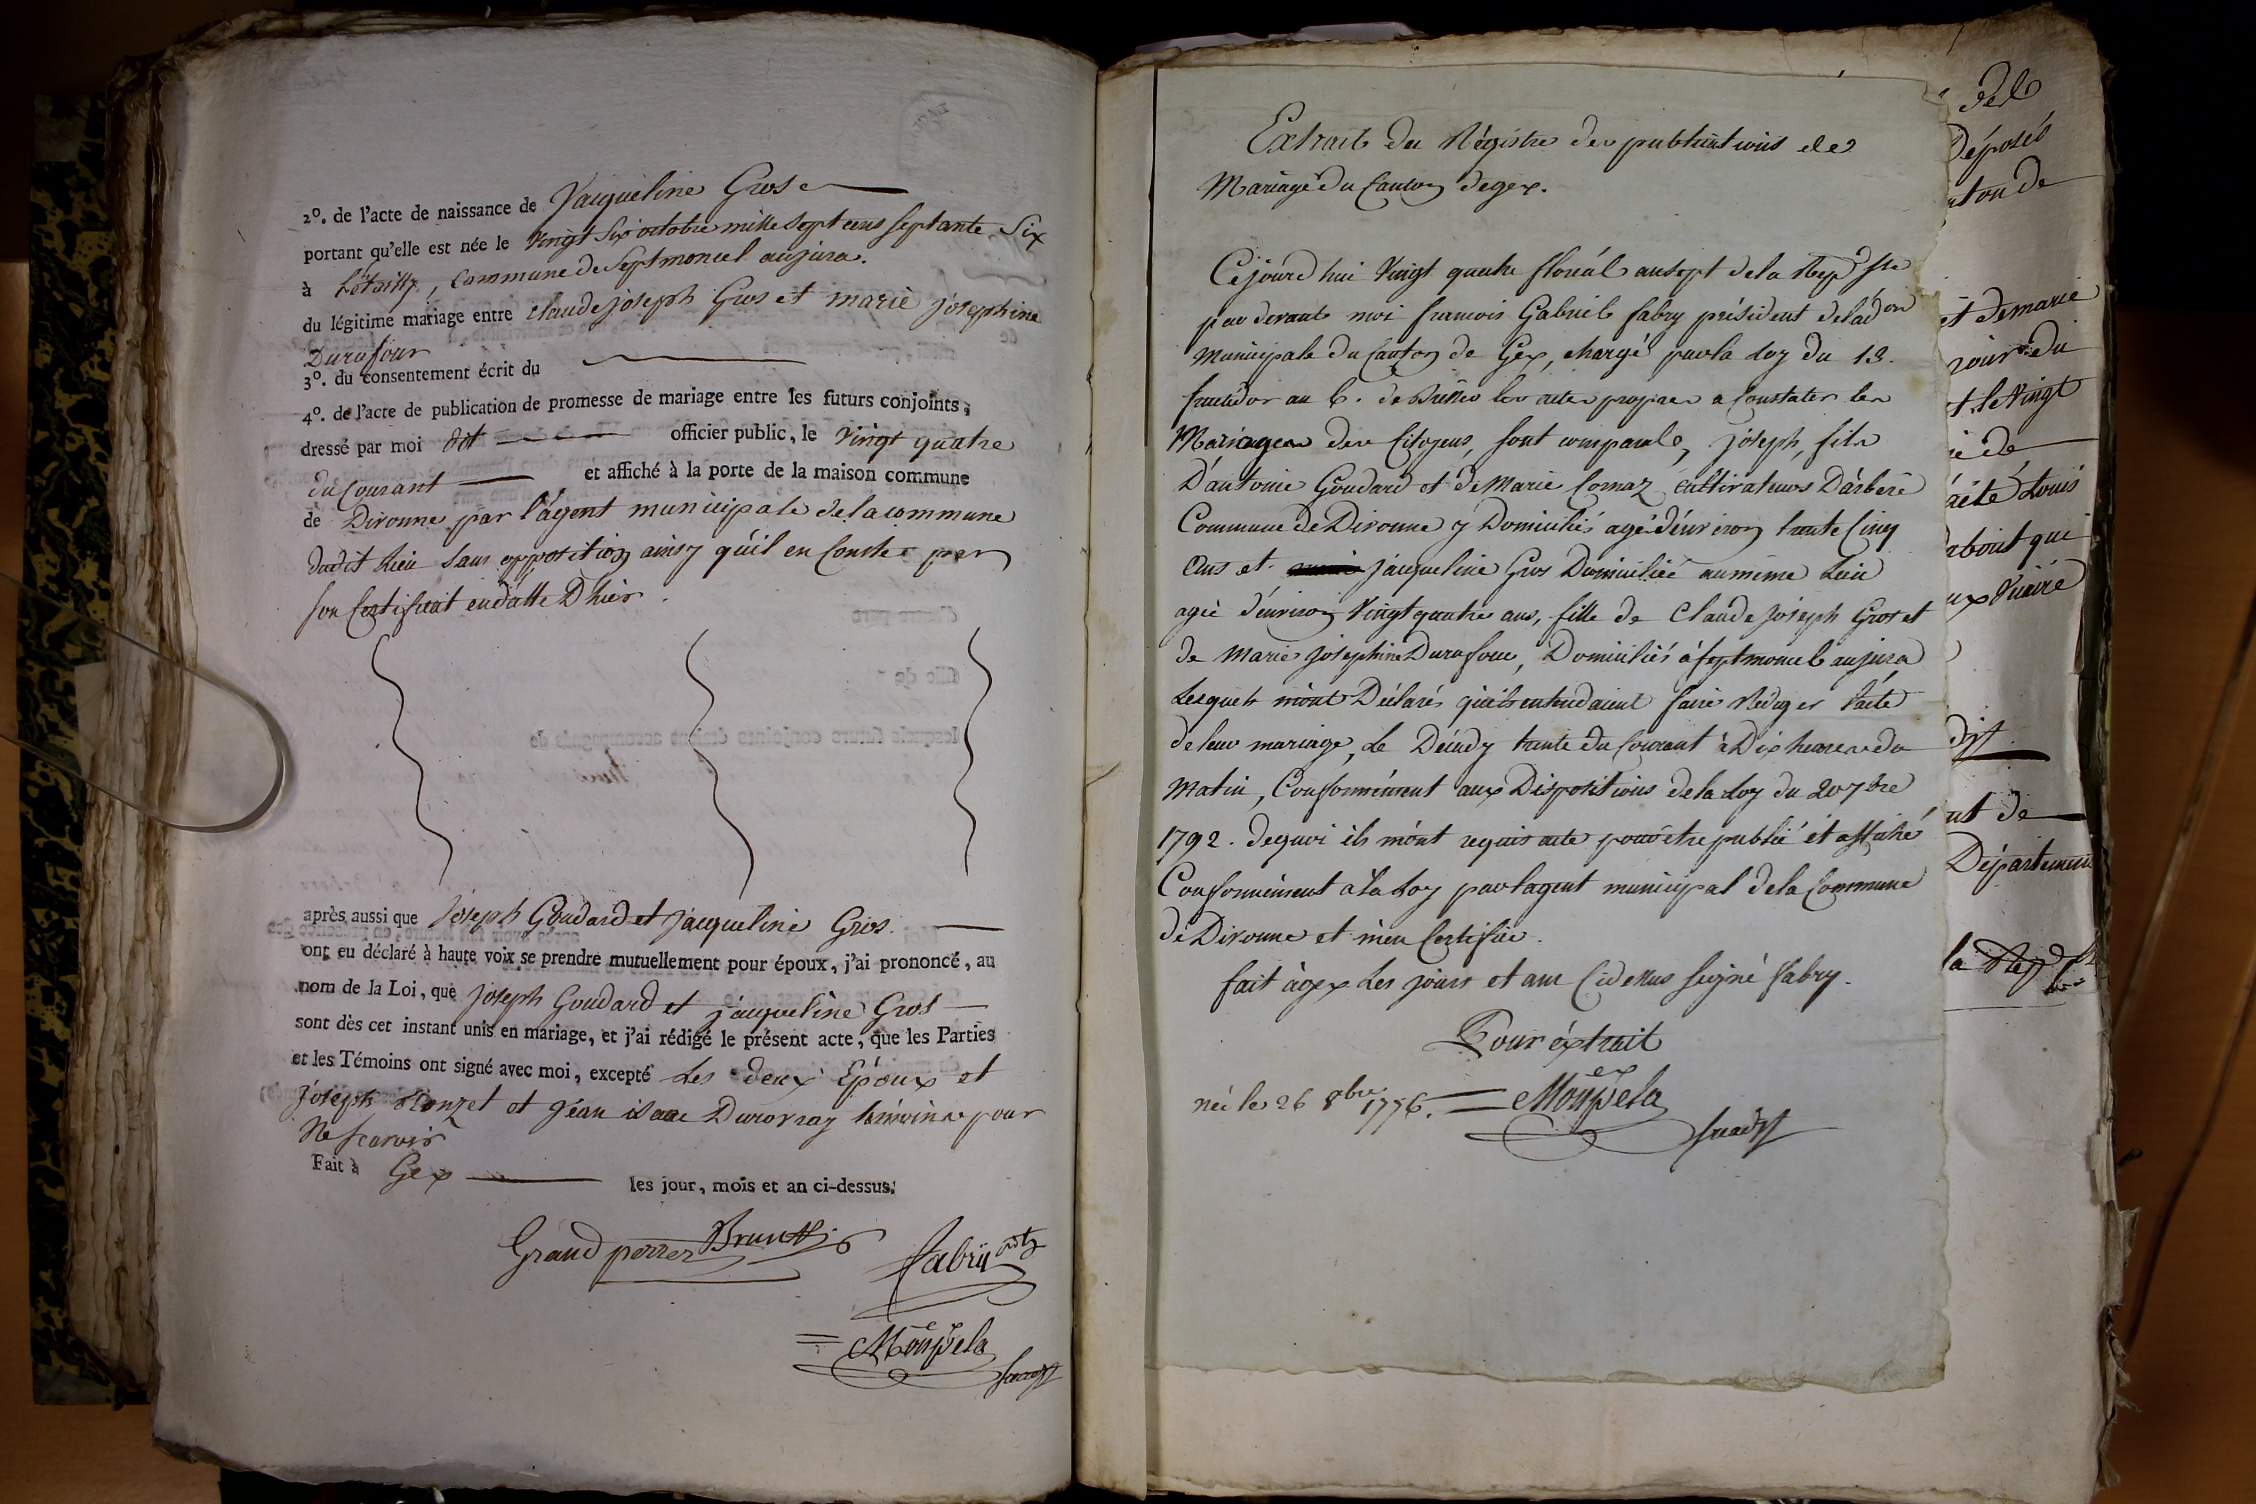 2º. de l'acte de naissance de Jacqueline Gros
portant qu'elle est née le vingt six octobre mille sept cens septante six
à , commune de Septmoncel au jura.
du légitime mariage entre claude joseph Gros et marie josephine
Durafour
3º. du consentement écrit du
4º. de l'acte de publication de promesse de mariage entre les futurs conjoints,
dressé par moi dit officier public, le vingt quatre
du Courant et affiché à la porte de la maison commune
de Divonne par l'agent municipale de la commune
dudit Lieu sans opposition ainsy qu'il en Conste par
son Certificat en datte D'hier.
après aussi que Joseph Goudard et Jacqueline Gros.
ont eu déclaré à haute voix se prendre mutuellement pour époux, j'ai prononcé, au
nom de la Loi, que Joseph Goudard et jacqueline Gros
sont dès cet instant unis en mariage, et j'ai rédigé le présent acte, que les Parties
et les Témoins ont signé avec moi, excepté Les deux Epoux et
Joseph et jean isaac témoins pour
Ne scavoir
Fait à Gex les jour, mois et an ci-dessus.
Grand perret
Fabry
Extrait du Régistre des publications de
Mariage du Canton de gex.
Cejourd'hui Vingt quatre floréal an sept de la
par devant moi francois Gabriel fabry président de l'ad.on
Municipale du Canton de Gex, chargé par la Loy du 13.
fructidor an 6. de les actes propres a Constater les
Mariages des Citoyens, sont comparuts, joseph, fils
D'antoine Goudard et de Marie Cornaz cultivateurs D'arbere
Commune de Divonne y Domiciliés agé d'environ trente Cinq
ans et jacqueline Gros Domiciliée au même Lieu
agée d'environ Vingt quatre ans, fille de Claude Joseph Gros et
de Marie josephine Durafour, Domiciliés à septmoncel au jura
Lesquels m'ont Déclarés qu'ils entendaient faire Rédiger l'acte
de leur mariage, Le Décady trente du Courant à Dix heures du
Matin, Conformément aux Dispositions de la Loy du 20 7bre
1792. dequoi ils m'ont requis acte pour être publié et affiché
Conformément à la Loy par l'agent municipal de la Commune
de Divonne et m'en Certifier.
fait à gex Les jours et an Cidessus signé fabry.
Pour éxtrait
née le 26 8bre 1776.
Déposés
et de marie
jour du
et le Vingt
Louis
Département